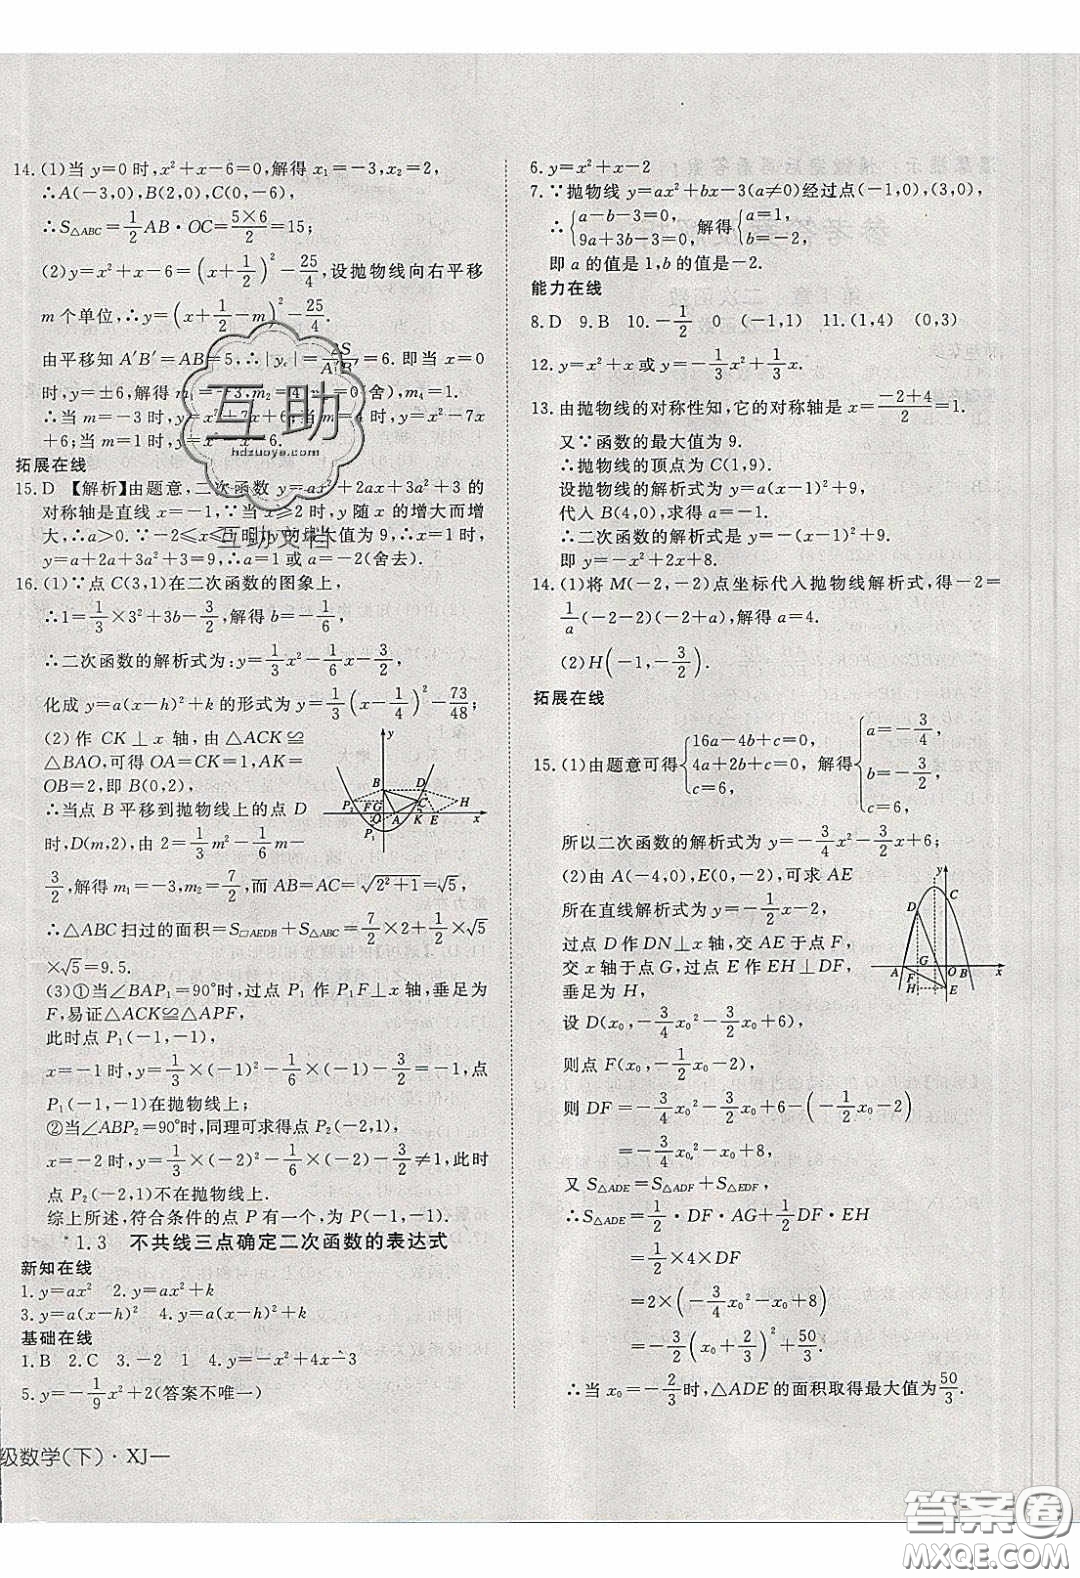 14. (1)当 y=0 时,x²+x-6=0,解得 x₁=-3,x₂=2,
∴A(-3,0),B(2,0),C(0,-6),
∴S△ABC=1/2 AB·OC=5×6/2=15;
(2)y=x²+x-6=(x+1/2)²-25/4,设抛物线向右平移
m 个单位,∴y=(x+1/2-m)²-25/4.
由平移知 A′B′=AB=5,∴|yc|=2S/A′B′=6. 即当 x=0
时,y=±6,解得 m₁=-3,m₂=4 =0(舍),m₄=1.
∴当 m=-3 时,y=x²+7x+6;当 m=4 时,y=x²-7x
+6;当 m=1 时,y=x²-x-6.
拓展在线
15. D 【解析】由题意,二次函数 y=ax²+2ax+3a²+3 的
对称轴是直线 x=-1,∵当 x≥2 时,y 随 x 的增大而增
大,∴a>0. ∵-2≤x≤1 时,y 的最大值为 9,∴x=1
时,y=a+2a+3a²+3=9,∴a=1 或 a=-2(舍去).
16. (1)∵点 C(3,1)在二次函数的图象上,
∴1=1/3×3²+3b-3/2,解得 b=-1/6,
∴二次函数的解析式为:y=1/3x²-1/6x-3/2,
化成 y=a(x-h)²+k 的形式为 y=1/3(x-1/4)²-73/48;
(2)作 CK⊥x 轴,由△ACK≌
△BAO,可得 OA=CK=1,AK=
OB=2,即 B(0,2),
∴当点 B 平移到抛物线上的点 D
时,D(m,2),由 2=1/3m²-1/6m-
3/2,解得 m₁=-3,m₂=7/2,而 AB=AC=√(2²+1)=√5,
∴△ABC 扫过的面积=S□AEDB+S△ABC=7/2×2+1/2×√5
×√5=9.5.
(3)①当∠BAP₁=90°时,过点 P₁ 作 P₁F⊥x 轴,垂足为
F,易证△ACK≌△APF,
此时点 P₁(-1,-1),
x=-1 时,y=1/3×(-1)²-1/6×(-1)-3/2=-1,点
P₁(-1,-1)在抛物线上;
②当∠ABP₂=90°时,同理可求得点 P₂(-2,1),
x=-2 时,y=1/3×(-2)²-1/6×(-2)-3/2≠1,此时
点 P₂(-2,1)不在抛物线上.
综上所述,符合条件的点 P 有一个,为 P(-1,-1).
y
B
D
P₁
F
G
C
H
O
A
K
E
x
P₁
*1.3 不共线三点确定二次函数的表达式
新知在线
1. y=ax² 2. y=ax²+k
3. y=a(x-h)² 4. y=a(x-h)²+k
基础在线
1. B 2. C 3. -2 1 4. y=-x²+4x-3
5. y=-1/9x²+2(答案不唯一)
级数学(下)·XJ—
6. y=x²+x-2
7. ∵抛物线 y=ax²+bx-3(a≠0)经过点(-1,0),(3,0),
∴{a-b-3=0, 9a+3b-3=0,解得{a=1, b=-2,
即 a 的值是 1,b 的值是-2.
能力在线
8. D 9. B 10. -1/2 0 (-1,1) 11. (1,4) (0,3)
12. y=x²+x 或 y=-1/3x²+1/3x.
13. 由抛物线的对称性知,它的对称轴是 x=-2+4/2=1.
又∵函数的最大值为 9.
∴抛物线的顶点为 C(1,9).
设抛物线的解析式为 y=a(x-1)²+9,
代入 B(4,0),求得 a=-1.
∴二次函数的解析式是 y=-(x-1)²+9.
即 y=-x²+2x+8.
14. (1)将 M(-2,-2)点坐标代入抛物线解析式,得-2=
1/a(-2-2)(-2+a),解得 a=4.
(2)H(-1,-3/2).
拓展在线
15. (1)由题意可得{16a-4b+c=0, 4a+2b+c=0, c=6,解得{a=-3/4, b=-3/2, c=6,
所以二次函数的解析式为 y=-3/4x²-3/2x+6;
(2)由 A(-4,0),E(0,-2),可求 AE
所在直线解析式为 y=-1/2x-2.
过点 D 作 DN⊥x 轴,交 AE 于点 F,
交 x 轴于点 G,过点 E 作 EH⊥DF,
垂足为 H,
y
C
D
G
A
O
B
x
F
H
E
设 D(x₀,-3/4x₀²-3/2x₀+6),
则点 F(x₀,-1/2x₀-2),
则 DF=-3/4x₀²-3/2x₀+6-(-1/2x₀-2)
=-3/4x₀²-x₀+8,
又 S△ADE=S△ADF+S△EDF,
∴S△ADE=1/2·DF·AG+1/2DF·EH
=1/2×4×DF
=2×(-3/4x₀²-x₀+8)
=-3/2(x₀+2/3)²+50/3.
∴当 x₀=-2/3时,△ADE 的面积取得最大值为50/3.
互助
hdzuoye.com
互助文档
答案卷
MXQE.COM